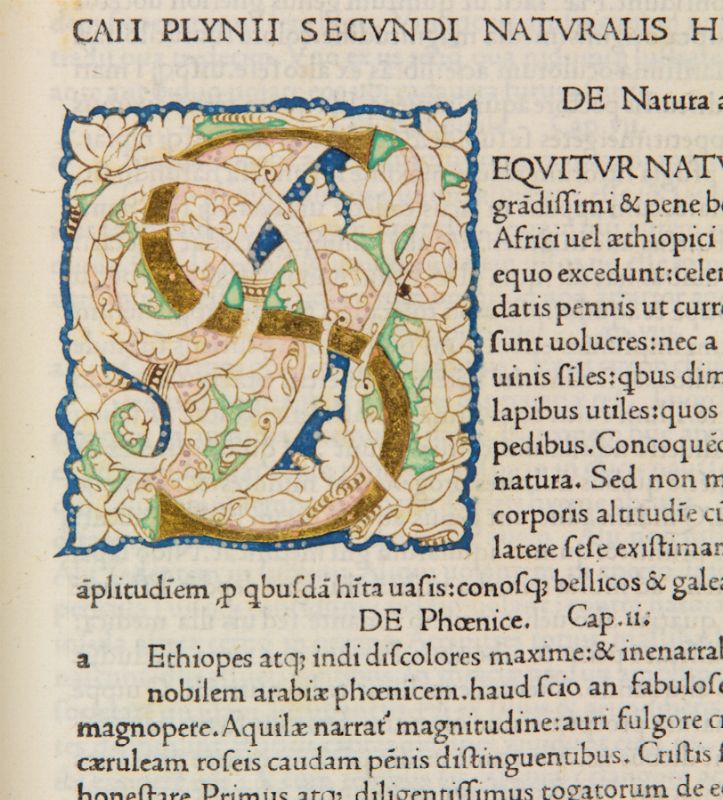 CAII PLYNII SECVNDI NATVRALIS H
DE Natura a
S
EQVITVR NATV
grādiſſimi & pene be
Africi uel æthiopici
equo excedunt:celer
datis pennis ut curre
ſunt uolucres:nec a
uinis ſiles:qbus dim
lapibus utiles:quos
pedibus.Concoquēd
natura. Sed non m
corporis altitudīe cū
latere ſeſe exiſtiman
āplitudīem ꝓ qbuſdā hīta uaſis:conoſqꝫ bellicos & galea
DE Phœnice. Cap.ii.
a Ethiopés atqꝫ indi diſcolores maxime:& inenarrab
nobilem arabiæ phœnicem.haud ſcio an fabuloſe
magnopere.Aquilæ narrat᷑ magnitudine:auri fulgore ci
cæruleam roſeis caudam pénis diſtinguentibus. Criſtis f
honeſtare.Primus atqꝫ diligentiſſimus togatorum de e